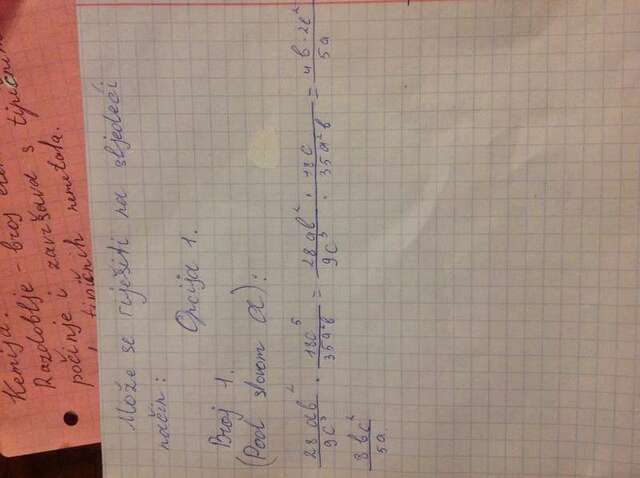 Kemija:
Razdoblje - broj
počinje i završava s tipičnim
tipičnih nemetala.
Može se riješiti na sljedeći
način:
Opcija 1.
Broj 1.
(Pod slovom a):
28ab²/9c³ · 18c⁵/35a²b = 28ab²/9c³ · 18c/35a²b = 4b·2c²/5a
8bc²/5a